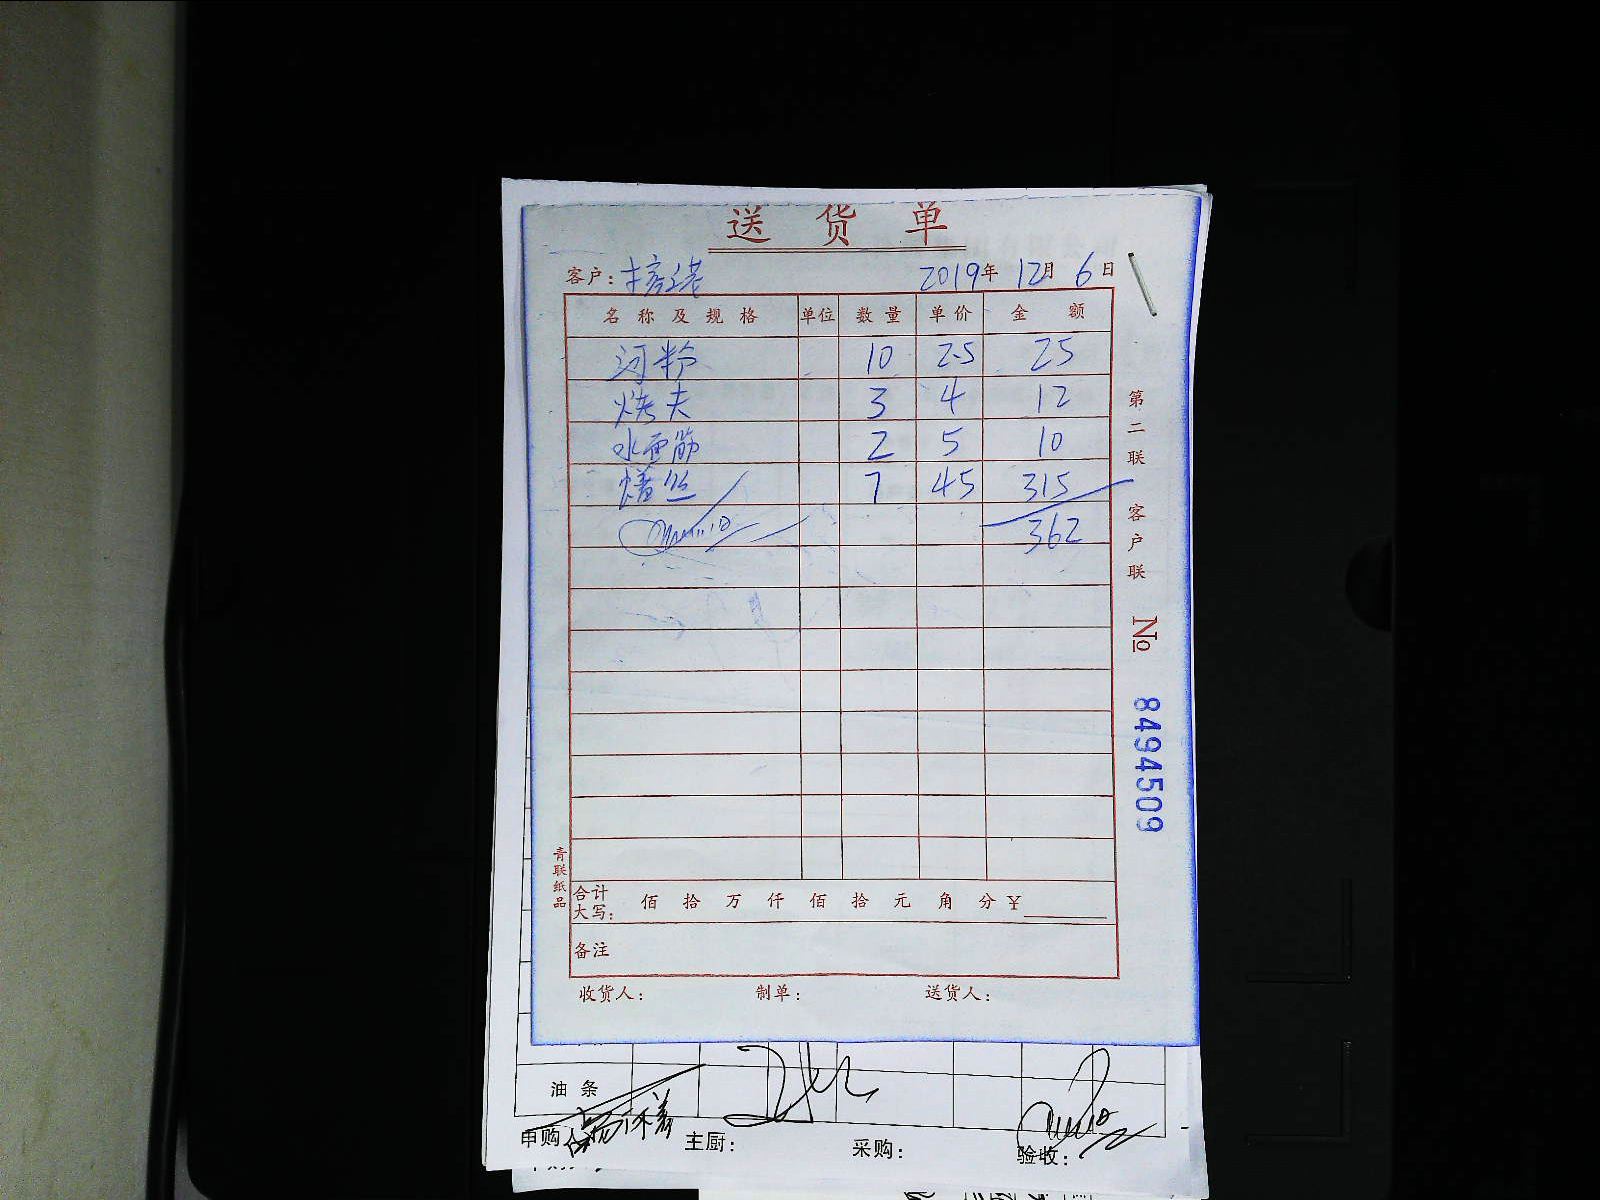 送货单
客户: 2019年 12月 6日
名称及规格 单位 数量 单价 金额
河粉 10 2.5 25
烤夫 3 4 12
水面筋 2 5 10
丝 7 45 315
362
合计大写: 佰 拾 万 仟 佰 拾 元 角 分 ¥
备注
收货人: 制单: 送货人:
第二联 客户联
No 8494509
青联纸品
油条
申购人 主厨: 采购: 验收: